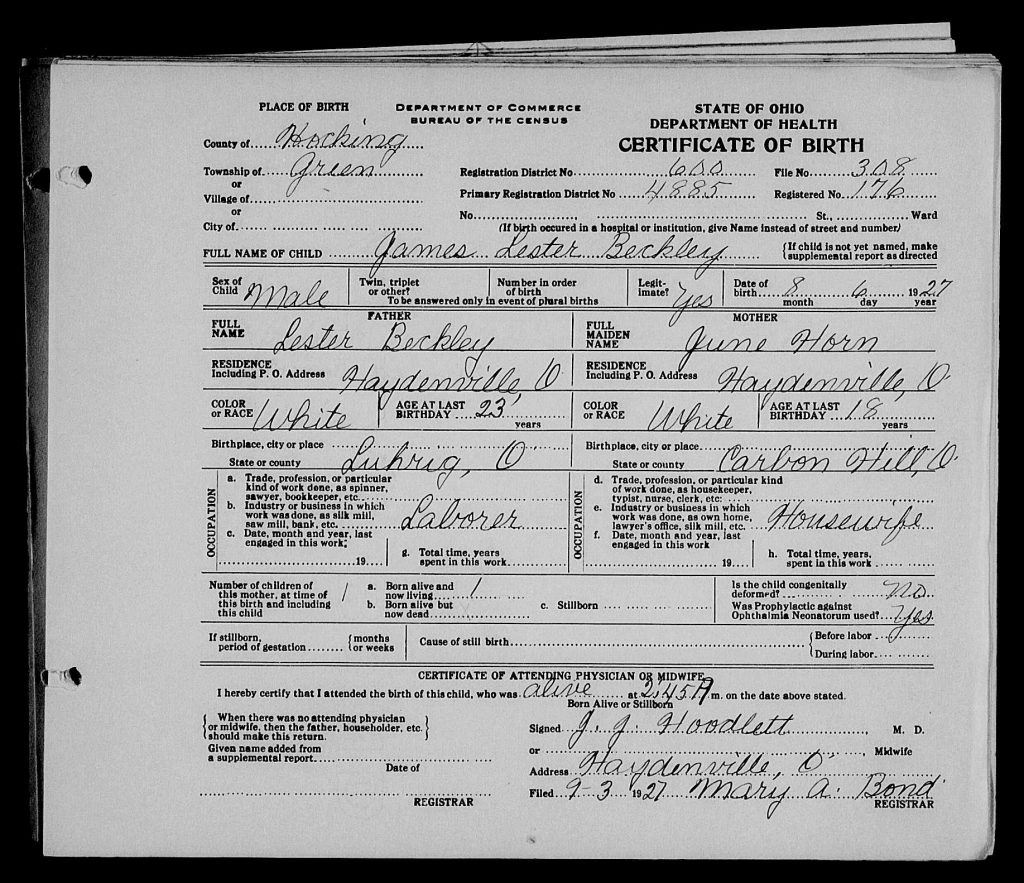 PLACE OF BIRTH
DEPARTMENT OF COMMERCE
BUREAU OF THE CENSUS
STATE OF OHIO
DEPARTMENT OF HEALTH
CERTIFICATE OF BIRTH
County of Hocking
Township of Green
or
Village of
or
City of
Registration District No 600 File No 308
Primary Registration District No 4885 Registered No. 176
No. St., Ward
(If birth occured in a hospital or institution, give Name instead of street and number)
FULL NAME OF CHILD James Lester Beckley {If child is not yet named, make supplemental report as directed
Sex of Child Male
Twin, triplet or other?
Number in order of birth
To be answered only in event of plural births
Legit-imate? Yes
Date of birth 8 6 1927
month day year
FATHER
FULL NAME Lester Beckley
RESIDENCE
Including P. O. Address Haydenville, O
COLOR or RACE White
AGE AT LAST BIRTHDAY 23 years
Birthplace, city or place
State or county Luhrig, O
OCCUPATION
a. Trade, profession, or particular kind of work done, as spinner, sawyer, bookkeeper, etc.
b. Industry or business in which work was done, as silk mill, saw mill, bank, etc. Laborer
c. Date, month and year, last engaged in this work; 19
g. Total time, years spent in this work
MOTHER
FULL MAIDEN NAME June Horn
RESIDENCE
Including P. O. Address Haydenville, O
COLOR or RACE White
AGE AT LAST BIRTHDAY 18 years
Birthplace, city or place
State or county Carbon Hill, O
OCCUPATION
d. Trade, profession, or particular kind of work done, as housekeeper, typist, nurse, clerk, etc:
e. Industry or business in which work was done, as own home, lawyer's office, silk mill, etc. Housewife
f. Date, month and year, last engaged in this work 19
h. Total time, years, spent in this work
Number of children of this mother, at time of this birth and including this child 1
a. Born alive and now living 1
b. Born alive but now dead
c. Stillborn
Is the child congenitally deformed? No
Was Prophylactic against Ophthalmia Neonatorum used? Yes
If stillborn, period of gestation {months or weeks
Cause of still birth
{Before labor
During labor
CERTIFICATE OF ATTENDING PHYSICIAN OR MIDWIFE
I hereby certify that I attended the birth of this child, who was alive at 2:45 A m. on the date above stated.
Born Alive or Stillborn
{When there was no attending physician or midwife, then the father, householder, etc. should make this return.}
Given name added from a supplemental report
Date of
REGISTRAR
Signed J. J. Hoodlett, M. D.
or , Midwife
Address Haydenville, O
Filed 9-3 1927 Mary A. Bond
REGISTRAR